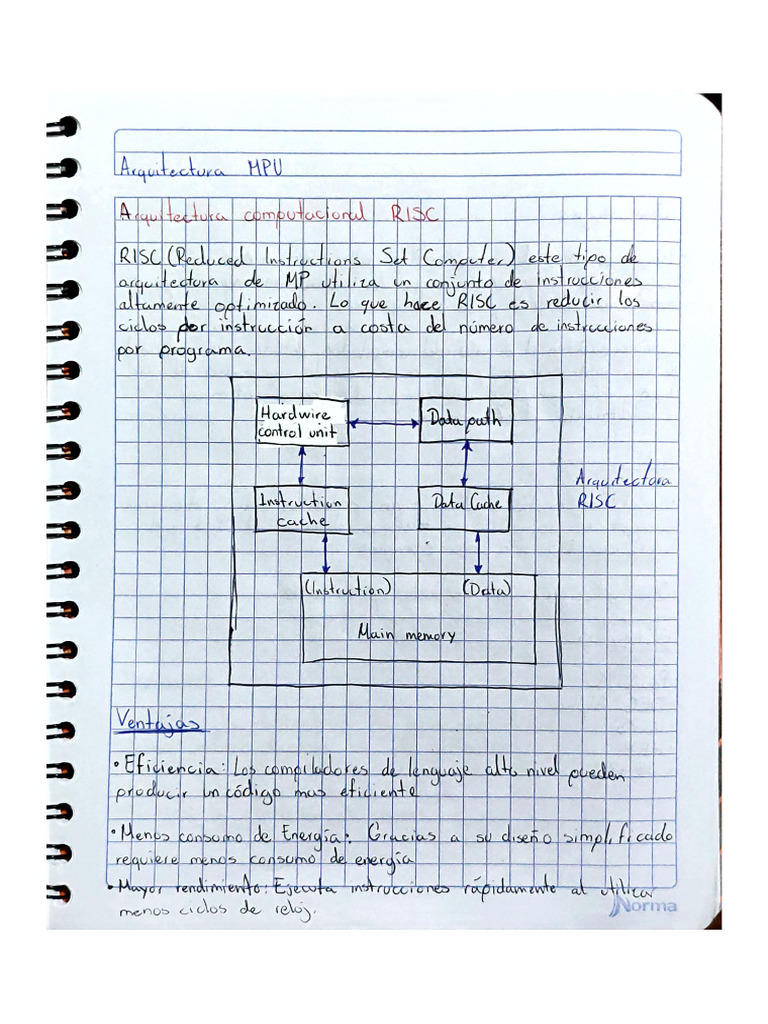 Arquitectura MPU
Arquitectura computacional RISC
RISC (Reduced Instructions Set Computer) este tipo de
arquitectura de MP utiliza un conjunto de instrucciones
altamente optimizado. Lo que hace RISC es reducir los
ciclos por instrucción a costa del número de instrucciones
por programa.
Hardwire
control unit
Data path
Instruction
cache
Data Cache
Arquitectura
RISC
(Instruction)
(Data)
Main memory
Ventajas
• Eficiencia: Los compiladores de lenguaje alto nivel pueden
producir un código mas eficiente
• Menos consumo de Energía: Gracias a su diseño simplificado
requiere menos consumo de energía
• Mayor rendimiento: Ejecuta instrucciones rápidamente al utilizar
menos ciclos de reloj.
Norma